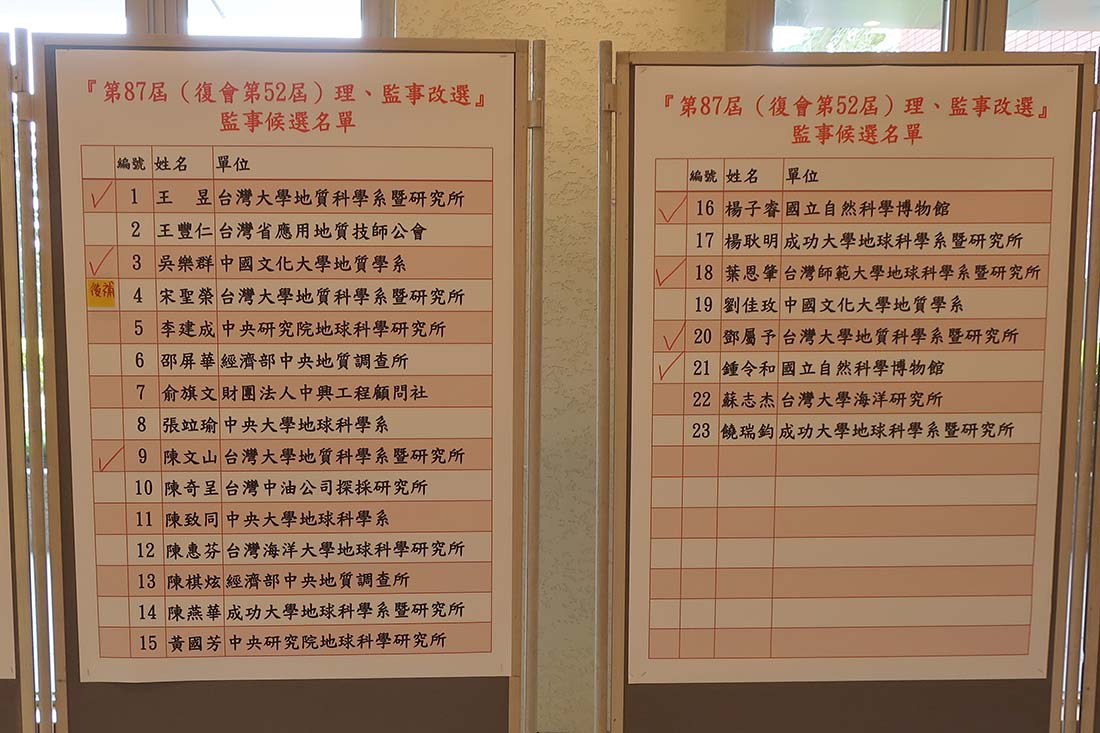 『第87屆（復會第52屆）理、監事改選』
監事候選名單
編號 姓名 單位
1 王 昱 台灣大學地質科學系暨研究所
2 王豐仁 台灣省應用地質技師公會
3 吳樂群 中國文化大學地質學系
後補 4 宋聖榮 台灣大學地質科學系暨研究所
5 李建成 中央研究院地球科學研究所
6 邵屏華 經濟部中央地質調查所
7 俞旗文 財團法人中興工程顧問社
8 張竝瑜 中央大學地球科學系
9 陳文山 台灣大學地質科學系暨研究所
10 陳奇呈 台灣中油公司探採研究所
11 陳致同 中央大學地球科學系
12 陳惠芬 台灣海洋大學地球科學研究所
13 陳棋炫 經濟部中央地質調查所
14 陳燕華 成功大學地球科學系暨研究所
15 黃國芳 中央研究院地球科學研究所
『第87屆（復會第52屆）理、監事改選』
監事候選名單
編號 姓名 單位
16 楊子睿 國立自然科學博物館
17 楊耿明 成功大學地球科學系暨研究所
18 葉恩肇 台灣師範大學地球科學系暨研究所
19 劉佳玫 中國文化大學地質學系
20 鄧屬予 台灣大學地質科學系暨研究所
21 鍾令和 國立自然科學博物館
22 蘇志杰 台灣大學海洋研究所
23 饒瑞鈞 成功大學地球科學系暨研究所